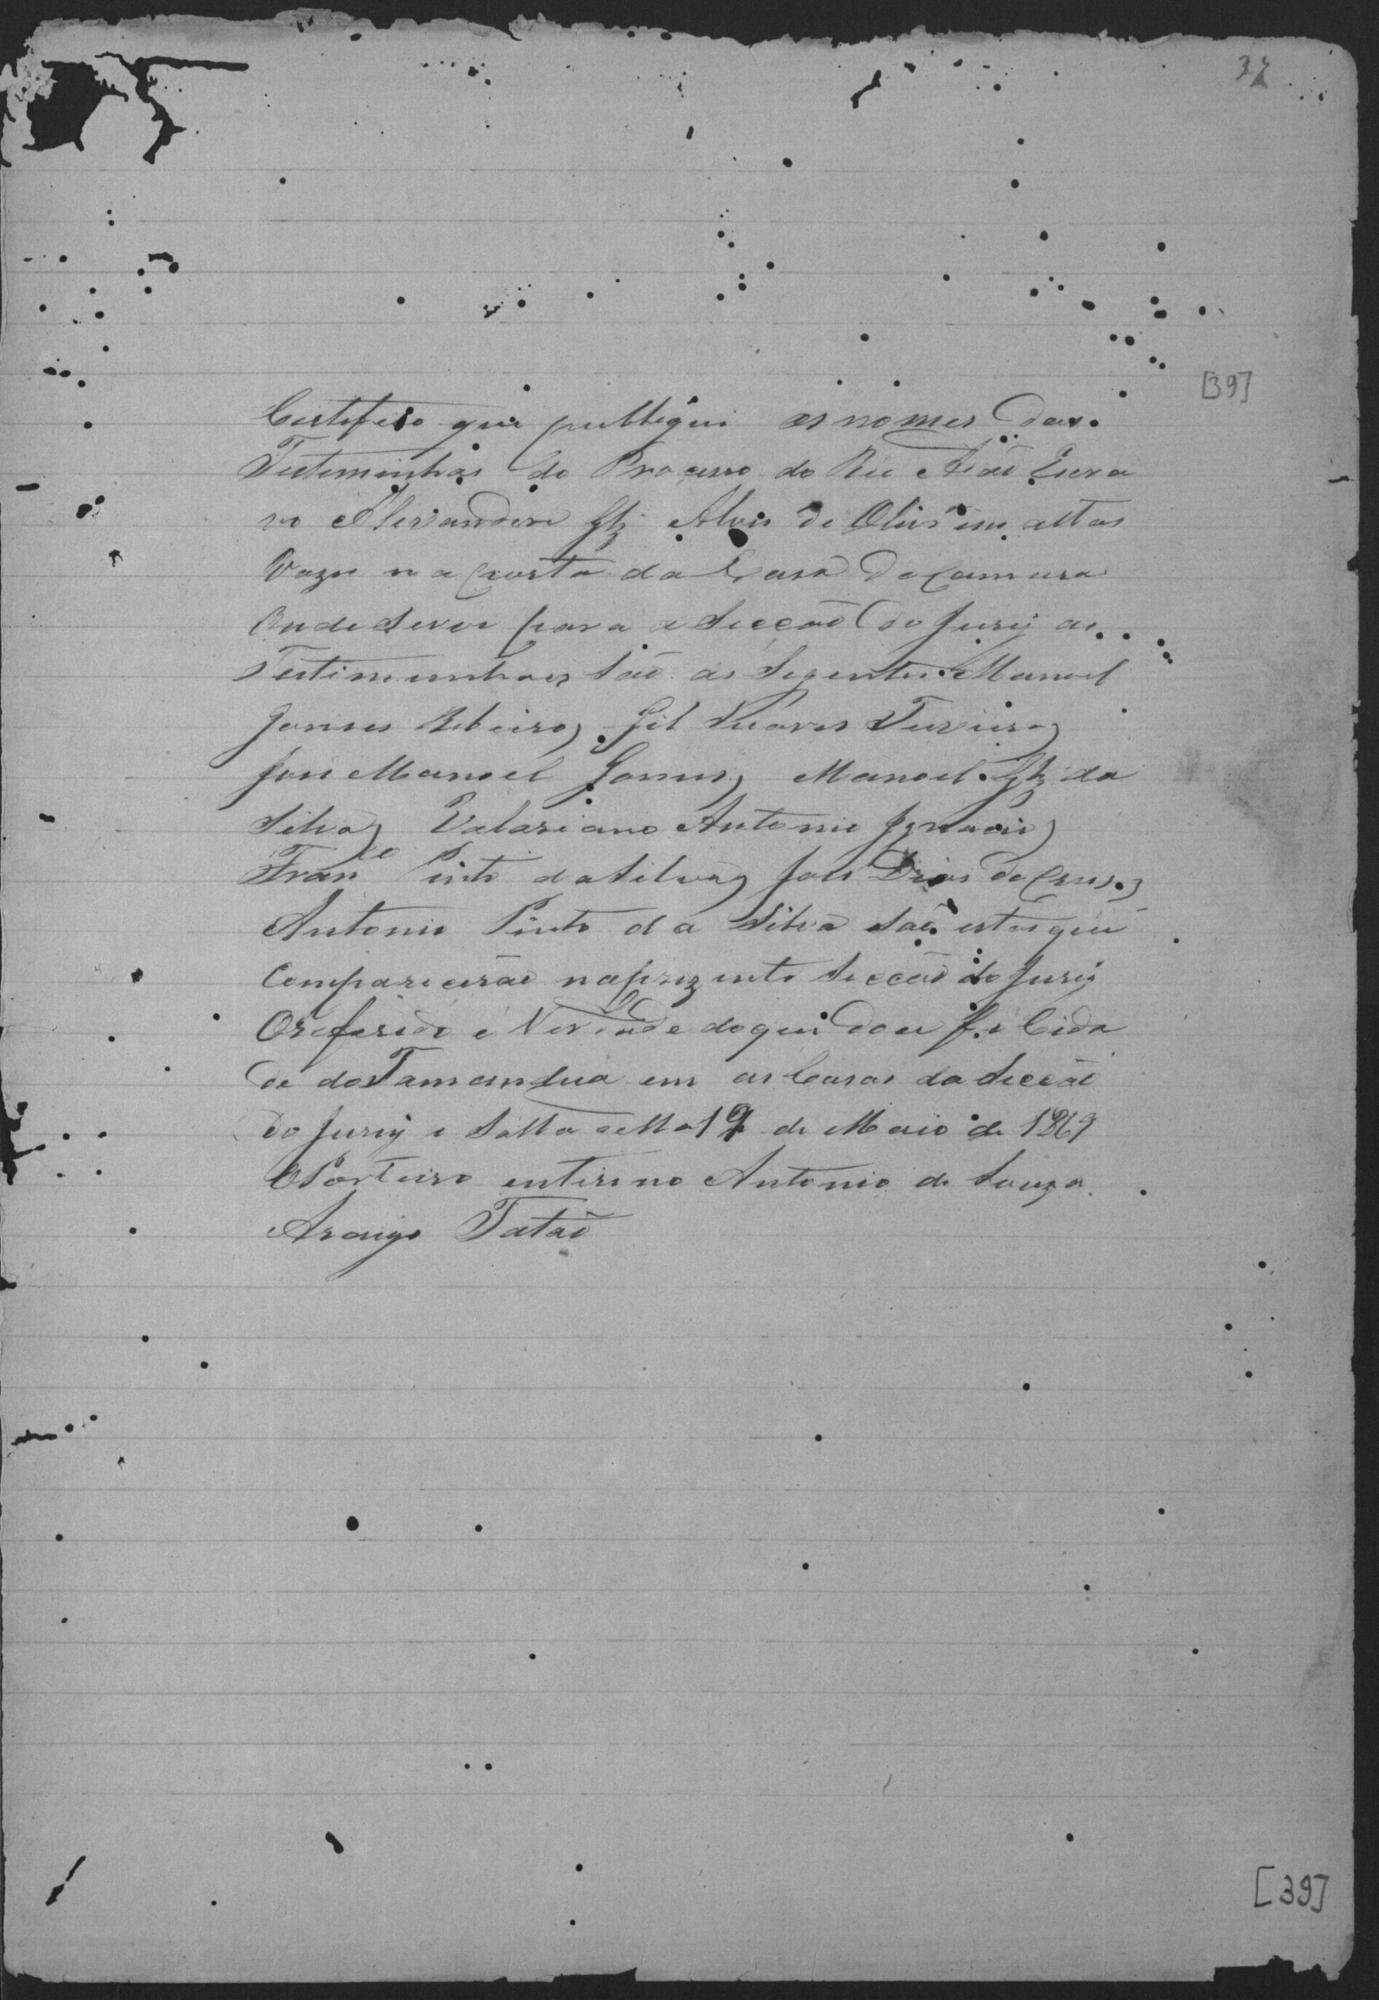 37
[39]
Certefico que publiquei os nomes das
Testeminhas do Processo do Reo Adão Escra
vo Alexandere Glz Alves de Olivª em altas
Vozes na porta da Casa da Camara
onde serve para a Secção do Jury as
Testimunhas São as Segentes Manoel
Gomes Ribeiro, Gil Nunes Teixeira,
José Manoel Gomes, Manoel Glz da
Silva, Valariano Antonio Ignacio,
Franco Pinto da Silva, José Dias da Crus,
Antonio Pinto da Silva são estes que
Comparicerão na prezente Secção do Jury
O referido é Verdade do que dou fé Cida
de do Tamandua em as Casas da Secção
do Jury e Salla della 12 de Maio de 1869
O Porteiro enterino Antonio de Souza
Araujo Tatão
[39]